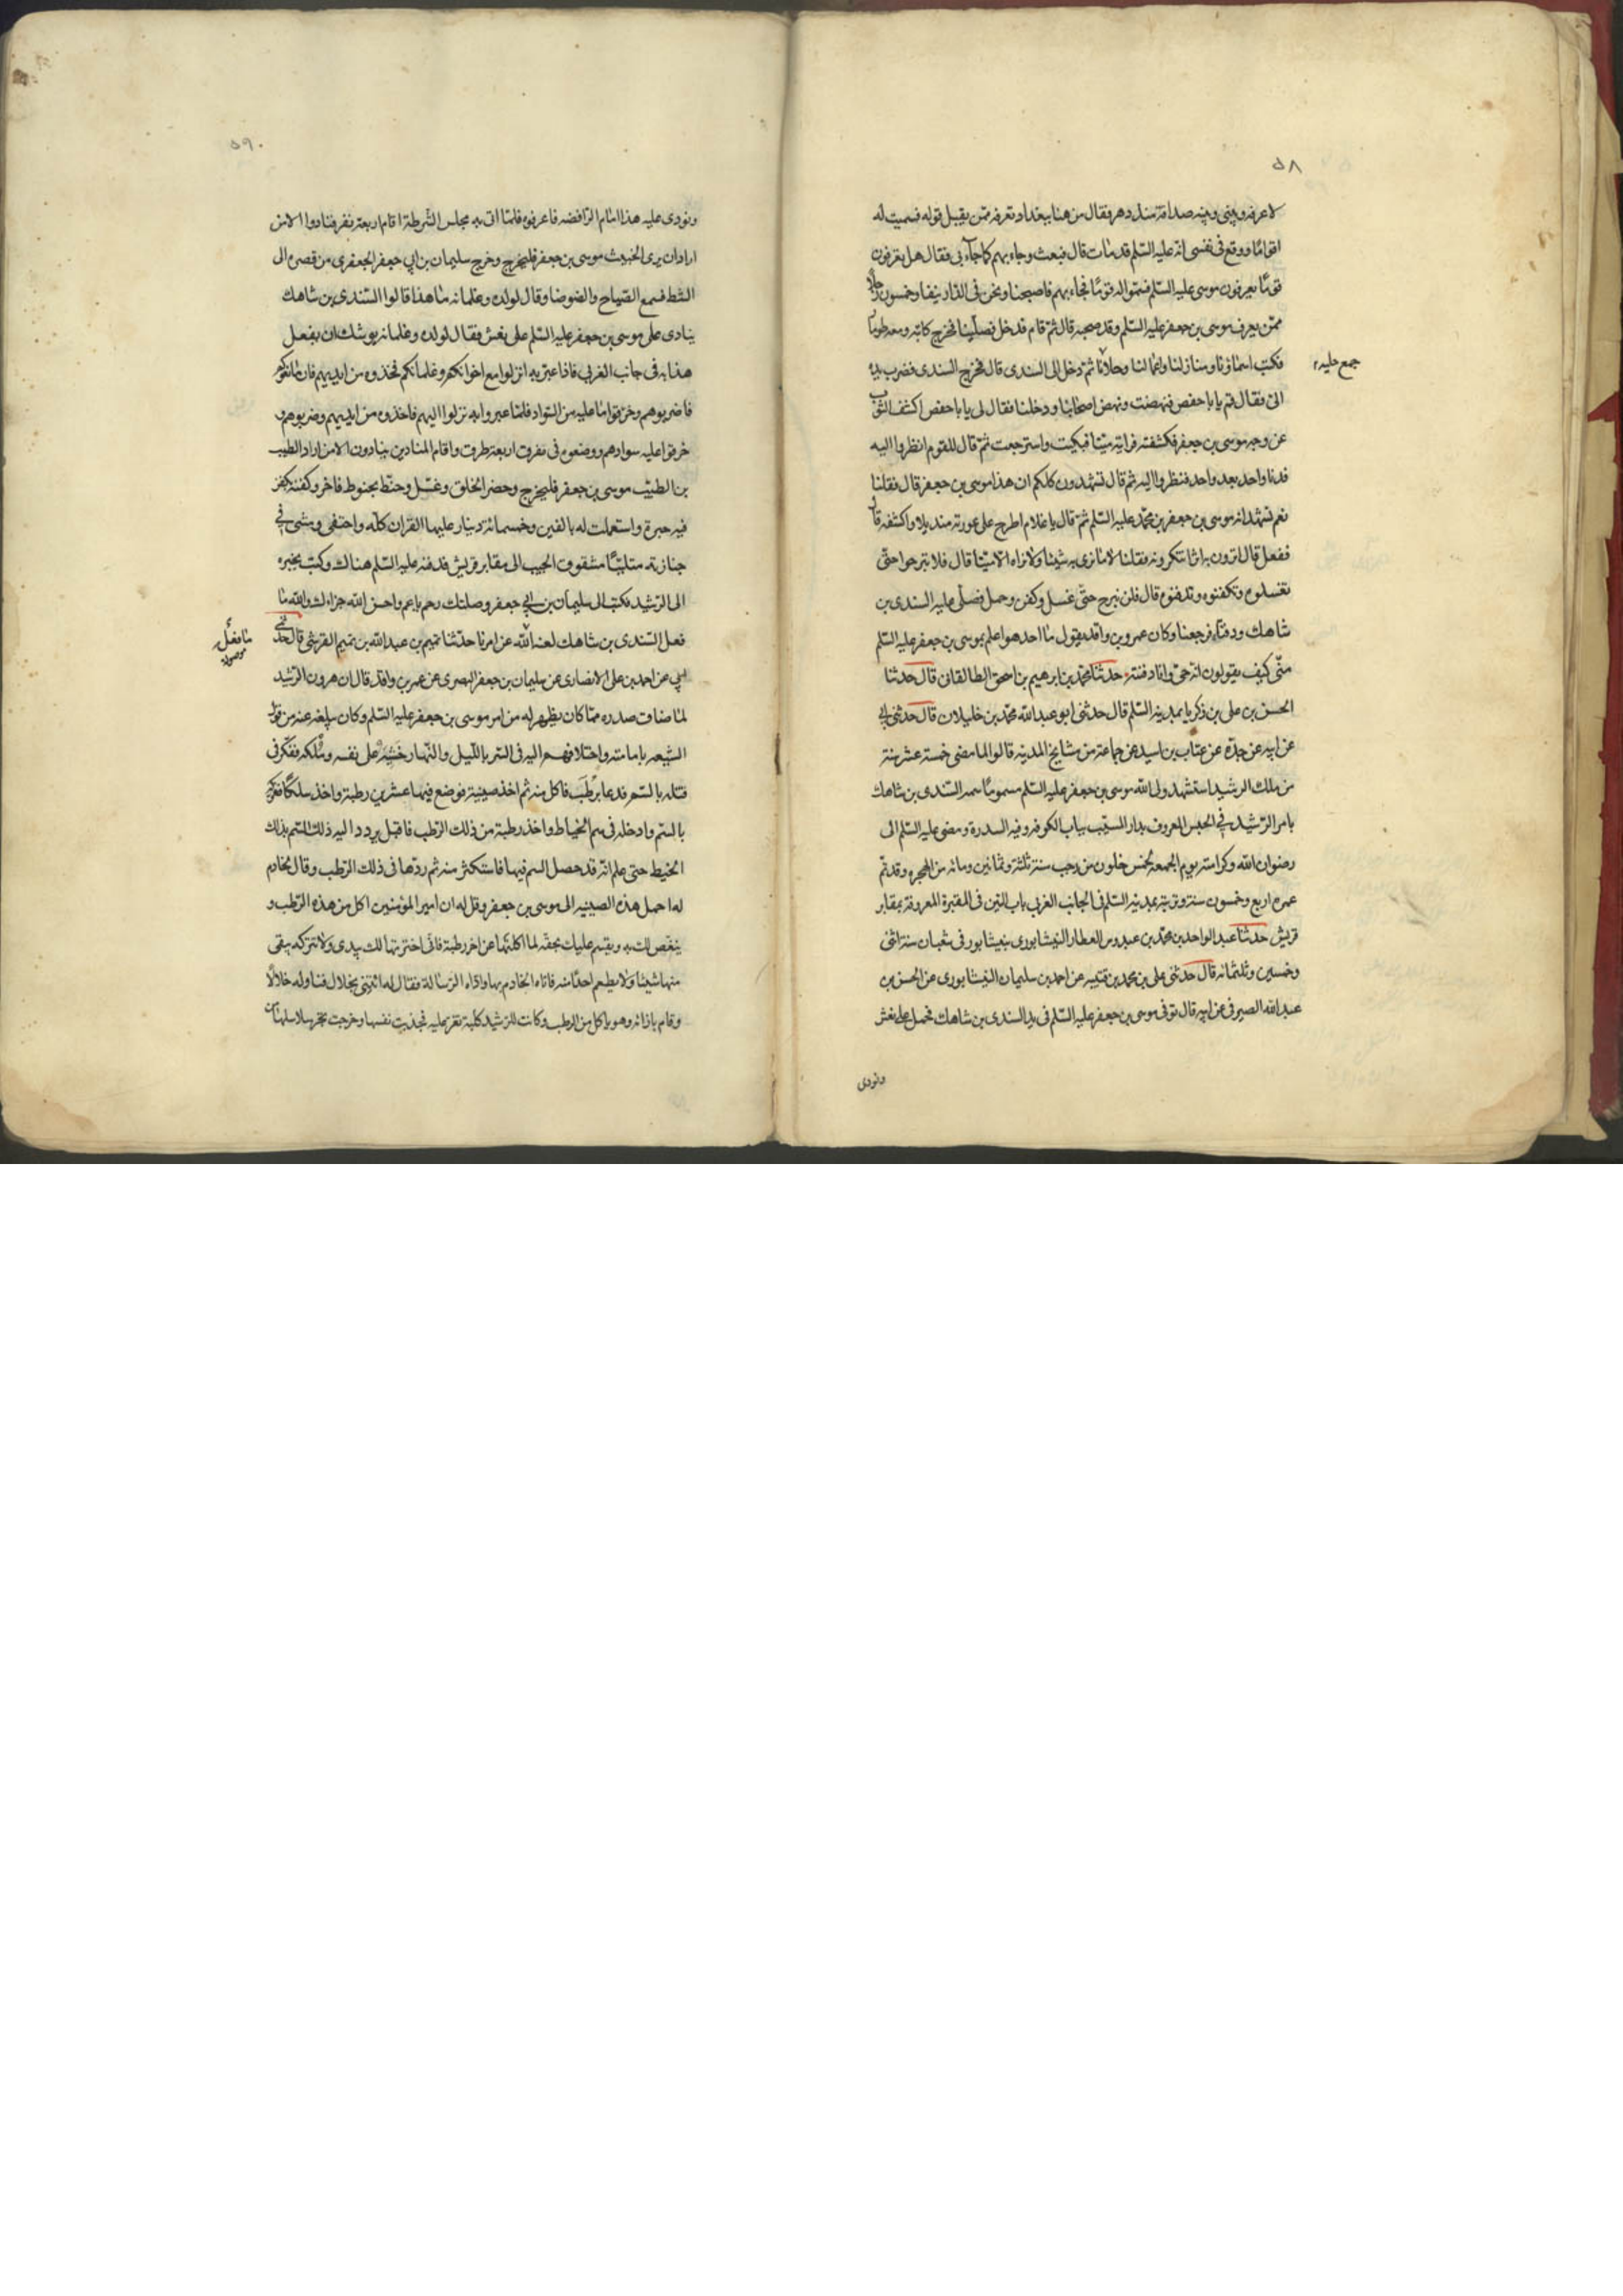 ٥٨
لاعرفه وبيني وبينه صداقة منذ دهر فقال من هنا ببغداد تعرفه ممن يقبل قوله فسميت له
اقواما ووقع في نفسي انه عليه السلم قد مات قال فبعث وجاء بهم كما جاء بي فقال هل تعرفون
قوما يعرفون موسى عليه السلم فسموا له قوما فجاء بهم فاصبحنا ونحن في الدار نيف وخمسون رجلا
ممن يعرف موسى بن جعفر عليه السلم وقد صحبه قال ثم قام فدخل فصلينا فخرج كاتبه ومعه طومار
فكتب اسماؤنا ومنازلنا واعمالنا وحلانا ثم دخل الى السندي قال فخرج السندي فضرب يده
جمع حليه
الي فقال قم يابا حفص فنهضت ونهض اصحابنا ودخلنا فقال لي يابا حفص اكشف الثوب
عن وجه موسى بن جعفر فكشفته فرايته ميتا فبكيت واسترجعت ثم قال للقوم انظروا اليه
فدنا واحد بعد واحد فنظروا اليه ثم قال تشهدون كلكم ان هذا موسى بن جعفر قال فقلنا
نعم نشهد انه موسى بن جعفر بن محمد عليه السلم ثم قال يا غلام اطرح على عورته منديلا واكشفه قال
ففعل قال اترون به اثرا تنكرونه فقلنا لا ما نرى به شيئا ولا نراه الا ميتا قال فلا تبرحوا حتى
تغسلوه وتكفنوه وتدفنوه قال فلن نبرح حتى غسل وكفن وحمل فصلى عليه السندي بن
شاهك ودفناه فرجعنا وكان عمرو بن واقد يقول ما احد هو اعلم بموسى بن جعفر عليه السلم
مني كيف يقولون انه حي وانا دفنته حدثنا محمد بن ابرهيم بن اسحق الطالقاني قال حدثنا
الحسن بن علي بن زكريا بمدينة السلم قال حدثني ابو عبد الله محمد بن خليلان قال حدثني ابي
عن ابيه عن جده عن عتاب بن اسيد عن جماعة من مشايخ المدينه قالوا لما مضى خمسة عشر سنة
من ملك الرشيد استشهد ولي الله موسى بن جعفر عليه السلم مسموما سمه السندي بن شاهك
بامر الرشيد في الحبس المعروف بدار المسيب بباب الكوفه وفيه السدرة ومضى عليه السلم الى
رضوان الله وكرامته يوم الجمعه لخمس خلون من رجب سنة ثلثة وثمانين ومائه من الهجره وقد تم
عمره اربع وخمسون سنة وتربته بمدينة السلم في الجانب الغربي باب التين في المقبرة المعروفة بمقابر
قريش حدثنا عبد الواحد بن محمد بن عبدوس العطار النيشابوري بنيشابور في شعبان سنة اثنى
وخمسين وثلثمائه قال حدثني علي بن محمد بن قتيبه عن احمد بن سليمان النيشابوري عن الحسن بن
عبد الله الصيرفي عن ابيه قال توفي موسى بن جعفر عليه السلم في يد السندي بن شاهك فحمل على نعش
ونودي
٥٩
ونودي عليه هذا امام الرافضه فاعرفوه فلما اتى به مجلس الشرطة اقام اربعة نفر فنادوا الا من
اراد ان يرى الخبيث موسى بن جعفر فليخرج وخرج سليمان بن ابي جعفر الجعفري من قصره الى
الشط فسمع الصياح والضوضا وقال لولده وغلمانه ما هذا قالوا السندي بن شاهك
ينادى على موسى بن جعفر عليه السلم على نعش فقال لولده وغلمانه يوشك ان يفعل
هذا به في جانب الغربي فاذا عبر به انزلوا مع اخوانكم وغلمانكم فخذوه من ايديهم فان مانعوكم
فاضربوهم وخرقوا ما عليهم من السواد فلما عبروا به نزلوا اليهم فاخذوه من ايديهم وضربوهم و
خرقوا عليه سوادهم ووضعوه في مفرق اربعة طرق واقام المنادين ينادون الا من اراد الطيب
بن الطيب موسى بن جعفر فليخرج وحضر الخلق وغسل وحنط بحنوط فاخر وكفنه بكفن
فيه حبرة واستعملت له بالفين وخمسمائة دينار عليها القران كله واحتفى ومشى في
جنازته متلببا مشقوق الجيب الى مقابر قريش فدفنه عليه السلم هناك وكتب بخبره
الى الرشيد فكتب الى سليمان بن ابي جعفر وصلتك رحم يا عم واحسن الله جزاءك والله ما
فعل السندي بن شاهك لعنه الله عن امرنا حدثنا تميم بن عبد الله بن تميم القرشي قال حدثني
ما فعل
موصوله
ابي عن احمد بن علي الانصاري عن سليمان بن جعفر البصري عن عمر بن واقد قال ان هرون الرشيد
لما ضاق صدره مما كان يظهر له من امر موسى بن جعفر عليه السلم وكان يبلغه عنه من قول
الشيعه بامامته واختلافهم اليه في السر بالليل والنهار خشيه على نفسه وملكه ففكر في
قتله بالسم فدعا برطب فاكل منه ثم اخذ صينية فوضع فيها عشرين رطبة واخذ سلكا فعركه
بالسم وادخله في سم الخياط واخذ رطبة من ذلك الرطب فاقبل يردد اليه ذلك السم بذلك
الخيط حتى علم انه قد حصل السم فيها فاستكثر منه ثم ردها في ذلك الرطب وقال لخادم
له احمل هذه الصينيه الى موسى بن جعفر وقل له ان امير المؤمنين اكل من هذه الرطب و
ينغص لك به ويقسم عليك بحقه لما اكلتها عن اخر رطبة فاني اخترتها لك بيدي ولا تتركه يبقي
منها شيئا ولا يطعم احدا منه فاتاه الخادم بها واداه الرسالة فقال له ائتني بخلال فناوله خلالا
وقام بازائه وهو ياكل من الرطب وكانت للرشيد كلبة تعز عليه فجذبت نفسها وخرجت تجر سلاسلها من